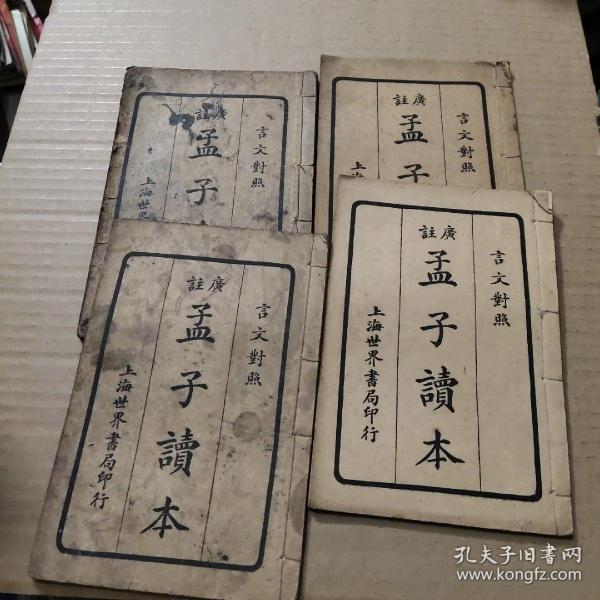 言文對照
廣註
孟子
上海世界
言文對照
廣註
孟子
上海
言文對照
廣註
孟子讀本
上海世界書局印行
言文對照
廣註
孟子讀本
上海世界書局印行
孔夫子旧书网
www.kongfz.com